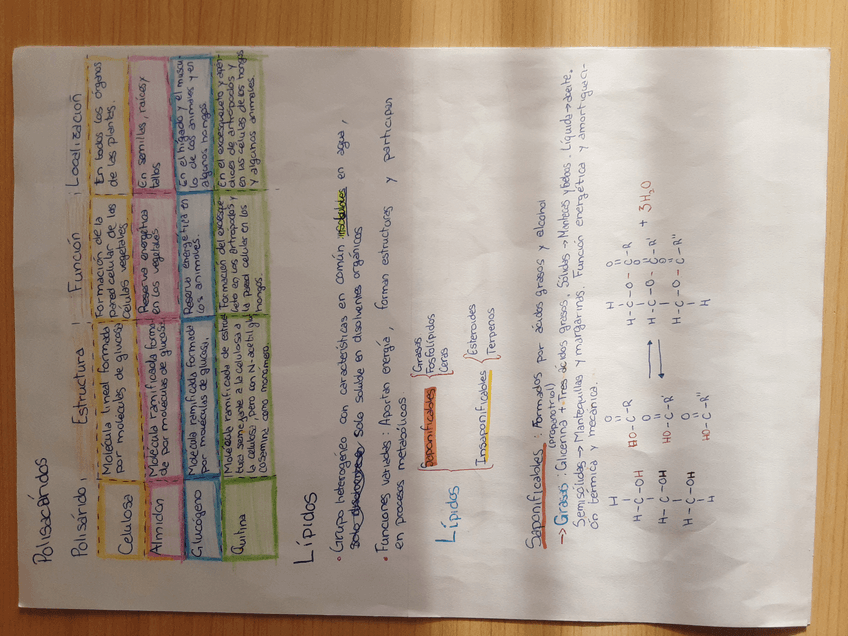 Polisacáridos
Polisárido Estructura Función Localización
Celulosa
Molécula lineal formada
por moléculas de glucosa
Formación de la
pared celular de las
células vegetales.
En todos los órganos
de las plantas.
Almidón
Molécula ramificada forma
da por moléculas de glucosa.
Reserva energética
en los vegetales
En semillas, raíces y
tallos
Glucógeno
Molécula ramificada formada
por moléculas de glucosa.
Reserva energética en
los animales.
En el hígado y el muscu-
lo de los animales y en
algunos hongos
Quitina
Molécula ramificada de estruc
tura semejante a la celulosa a
la celulosa, pero con N-acetil glu
cosamina como monómero.
Formación del exoesque-
leto en los artropodos y
la pared celular en los
hongos.
En el exoesqueleto y apén-
dices de artropodos y
en las celulas de los hongos
y algunos animales.
Lípidos
• Grupo heterogéneo con características en común insolubles en agua,
Solo soluble en disolventes orgánicos
• Funciones variadas: Aportan energía, forman estructuras y participan
en procesos metabólicos
Lípidos
Saponificables
Grasas
Fosfolípidos
Ceras
Insaponificables
Esteroides
Terpenos
Saponificables: Formados por ácidos grasos y alcohol
(propanotriol)
→ Grasas: Glicerina + Tres ácidos grasos. Sólidas → Mantecas y sebos. Líquida → aceite.
Semisólidas → Mantequillas y margarinas. Función energética y amortiguaci-
ón térmica y mecánica.
H
H-C-OH
H-C-OH
H-C-OH
H
O
HO-C-R
O
HO-C-R'
O
HO-C-R''
H
O
H-C-O-C-R
O
H-C-O-C-R'
O
H-C-O-C-R''
H
+ 3H₂O